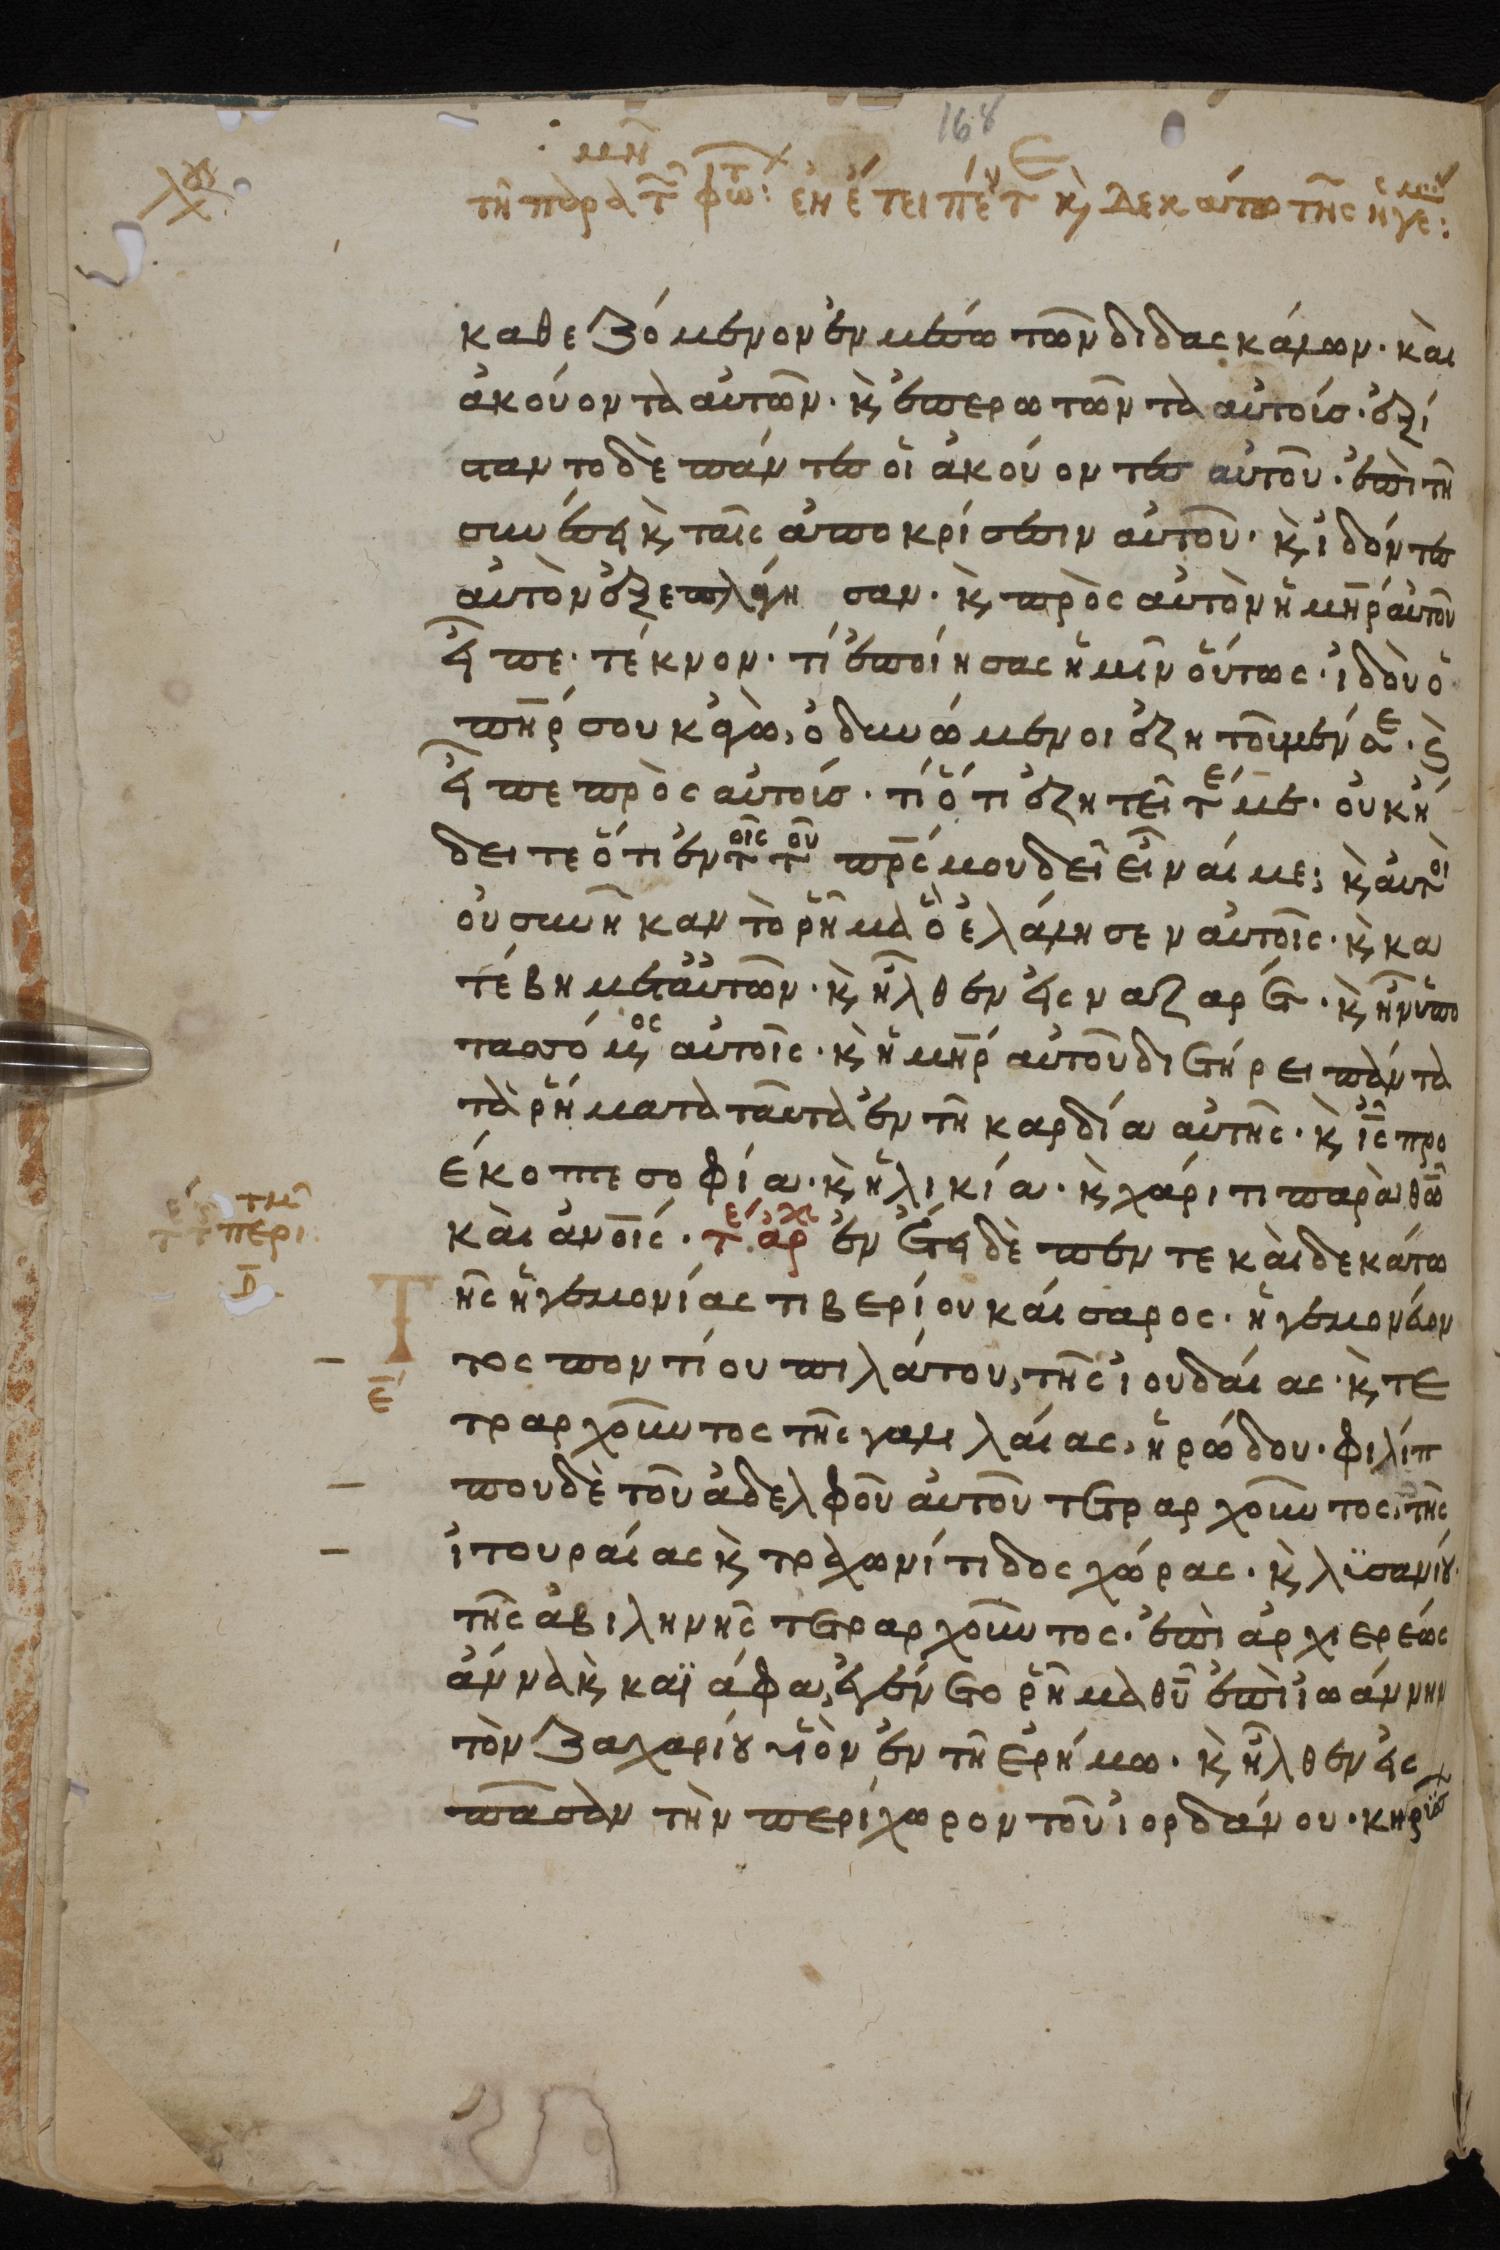 168
τῆ παρα τ φω: ἐν ἔτει πε τ κ, δεκάτω τῆς ἡγε:
καθεζόμενον ἐν μέσω τῶν διδασκάλων· καὶ
ἀκούοντα αὐτῶν· κ, ἐπερωτῶντα αὐτούσ· ἐξί
σταντο δὲ πάντεσ οἱ ἀκούοντεσ αὐτοῦ· ἐπὶ τῆ
συνέσει κ, ταῖς ἀποκρίσεσιν αὐτοῦ· κ, ἰδόντεσ
αὐτὸν ἐξεπλάγησαν· κ, πρὸς αὐτὸν ἡ μηρ αὐτοῦ
εἶπε· τέκνον· τί ἐποίησας ἡμῖν οὕτως· ἰδοὺ ὁ
πηρ σου κἀγὼ, ὀδυνώμενοι ἐζητοῦμέν σε· κ,
εἶπε πρὸς αὐτούσ· τί ὅτι ἐζητεῖτέ με· οὐκ ἤ
δειτε ὅτι ἐν τοῖς τοῦ πρς μου δεῖ εἶναί με; κ, αὐτοὶ
οὐ συνῆκαν τὸ ῥῆμα ὃ ἐλάλησεν αὐτοῖς· κ, κα
τέβη μετ αὐτῶν· κ, ἦλθεν εἰς ναζαρέτ· κ, ἦν ὑπο
τασσόμενος αὐτοῖς· κ, ἡ μηρ αὐτοῦ διετήρει πάντα
τὰ ῥήματα ταῦτα ἐν τῆ καρδία αὐτῆς· κ, ις προ
έκοπτε σοφία· κ, ἡλικία· κ, χάριτι παρὰ θω
καὶ ἀνοις· τε αρχ ἐν ἔτει δὲ πεντεκαιδεκάτω
Τ ῆς ἡγεμονίας τιβερίου καίσαρος· ἡγεμονεύον
τος ποντίου πιλάτου, τῆς ἰουδαίας· κ, τε
τραρχοῦντος τῆς γαλιλαίας, ἡρώδου· φιλίπ
που δὲ τοῦ ἀδελφοῦ αὐτοῦ τετραρχοῦντος, τῆς
ἰτουραίας κ, τραχωνίτιδος χώρας· κ, λϋσανίου·
τῆς ἀβιληνῆς τετραρχοῦντος· ἐπὶ ἀρχιερέως
ἄννα κ, καϊάφα, ἐγένετο ῥῆμα θυ ἐπὶ ἰωάννην
τὸν ζαχαρίου υἱὸν ἐν τῆ ἐρήμω· κ, ἦλθεν εἰς
πᾶσαν τὴν περίχωρον τοῦ ἰορδάνου· κηρύσ
περι